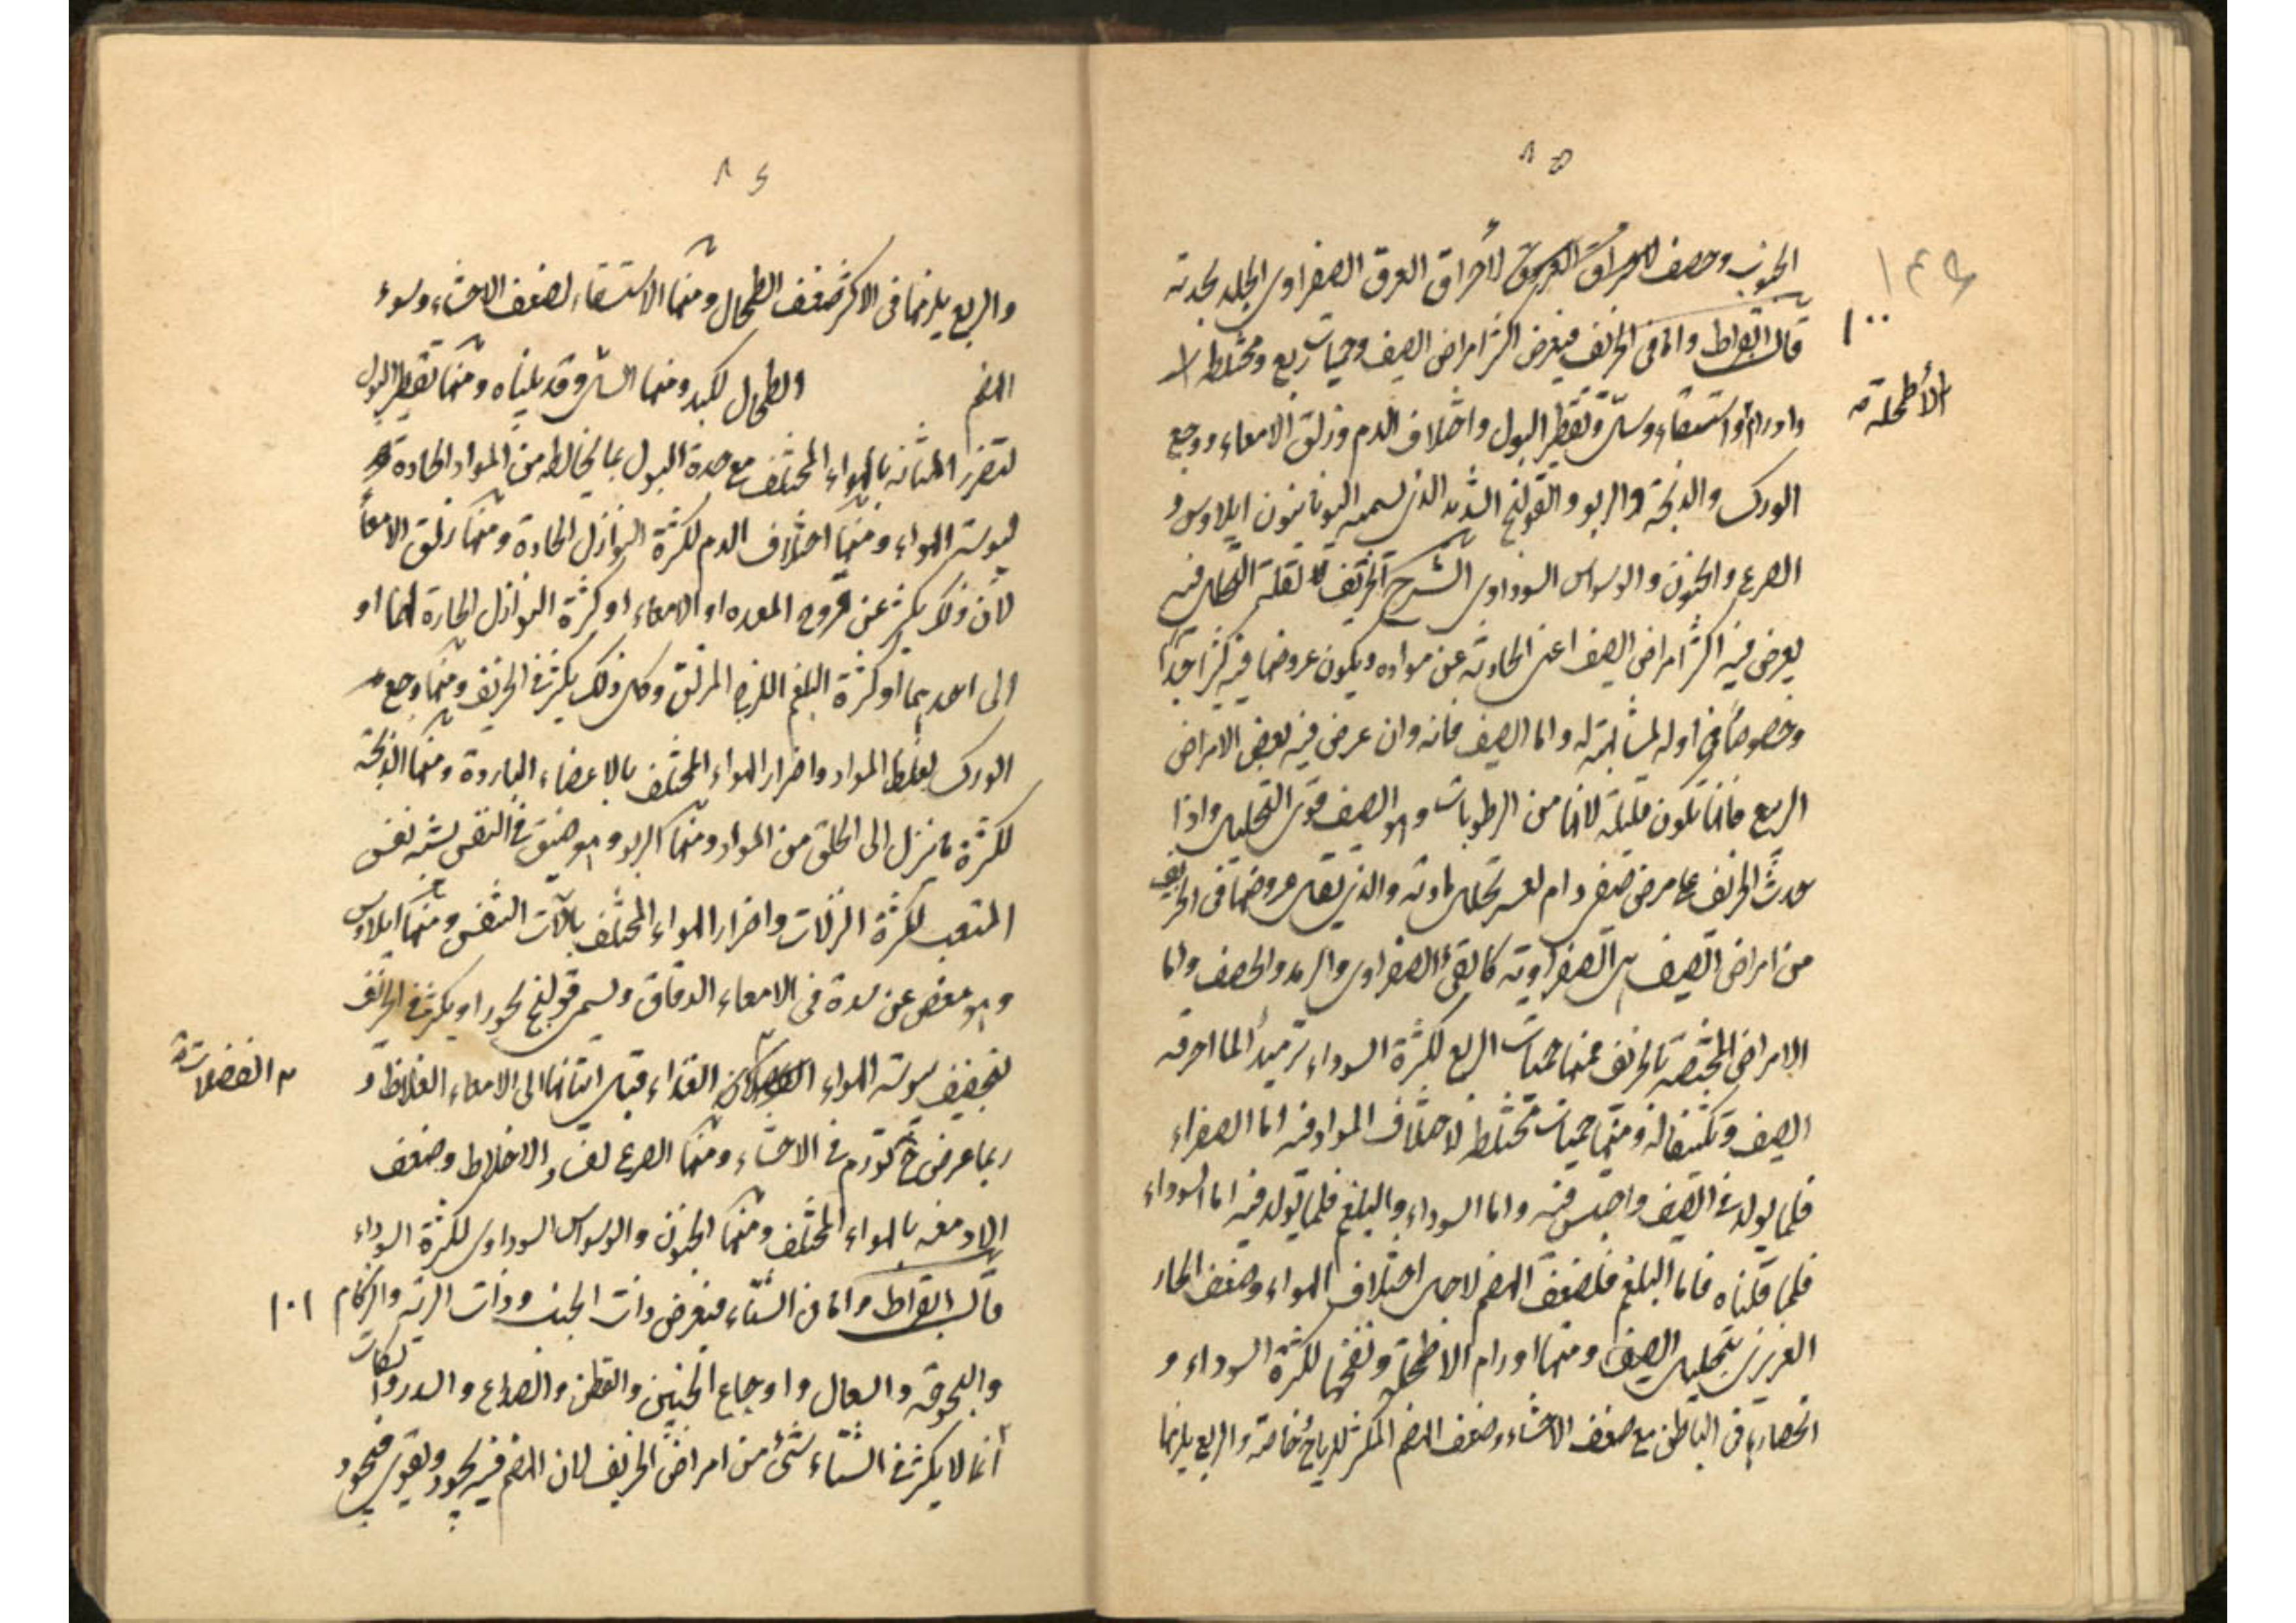 ٨٥
الجنوب وحصف لاحراق العرق الصفراوى الجلد بحدته
قال ابقراط واما فى الخريف فيعرض اكثر امراض الصيف وحميات ربع ومختلطة
١٠٠
واورام واستسقاء وسل وتقطير البول واختلاف الدم وزلق الامعاء ووجع
الأطحلة
الورك والذبحة والربو والقولنج الشديد الذى يسميه اليونانيون ايلاوس و
الصرع والجنون والوسواس السوداوى الشرح الخريف لقلة التحلل فيه
يعرض فيه اكثر امراض الصيف اعنى الحادثة عن مواده ويكون عروضها فيه كثرا جدا
وخصوصا فى اوله لمشابهته له واما الصيف فانه وان عرض فيه بعض الامراض
الربيع فانها تكون قليلة لانها من الرطوبات وهو الصيف قوى التحليل واذا
حدث الخريف على مرض صيفى دام لعسر تحلل مادته والذى يقل عروضها فى الخريف
من امراض الصيف هى الصفراوية كالقئ الصفراوى والرمد والحصف واما
الامراض المختصة بالخريف فمنها حميات الربع لكثرة السوداء ترميدا لما احرقه
الصيف وتكثيفا له ومنها حميات مختلطة لاختلاف المواد فيه اما الصفراء
فلما تولد فى الصيف واحتبس فيه واما السوداء والبلغم فلما تولد فيه اما السوداء
فلما قلناه فاما البلغم فلضعف الهضم لاجل اختلاف الهواء وضعف الحار
الغريزى بتحليل الصيف ومنها اورام الاطحلة ونفخها لكثرة السوداء و
انحصارها فى الباطن مع ضعف الاحشاء وضعف الهضم المكثر للرياح خاصة والربع يلزمها
٨٤
والربع يلزمها فى الاكثر ضعف الطحال ومنها الاستسقاء لضعف الاحشاء وسوء
الهضم والطحال لكبد ومنها السل وقد بيناه ومنها تقطير البول
لتضرر المثانة بالهواء المختلف مع حدة البول بما يخالطه من المواد الحادة
ليبوسة الهواء ومنها اختلاف الدم لكثرة النوازل الحادة ومنها زلق الامعاء
لان ذلك يكثر عن قروح المعده او الامعاء او كثرة النوازل الحارة لهما او
الى احديهما او كثرة البلغم اللزج المزلق وكل ذلك يكثر فى الخريف ومنها وجع
الورك لغلظ المواد واضرار الهواء المختلف بالاعضاء الباردة ومنها الذبحة
لكثرة ما ينزل الى الحلق من المواد ومنها الربو وهو ضيق فى النفس يشبه نفس
المتعب لكثرة النزلات واضرار الهواء المختلف بالآت التنفس ومنها ايلاوس
وهو مغص عن سدة فى الامعاء الدقاق ويسمى قولنج بحورا ويكثر فى الخريف
لتجفيف يبوسة الهواء الغذاء قبل انتهائها الى الامعاء الغلاظ و
الفضلات
ربما عرض ح تورم فى الاحشاء ومنها الصرع لفساد الاخلاط وضعف
الادمغه بالهواء المختلف ومنها الجنون والوسواس السوداوى لكثرة السوداء
قال ابقراط واما فى الشتاء فيعرض ذات الجنب وذات الرئه والزكام
١٠١
والبحوحة والسعال واوجاع الجنبين والقطن والصداع والسدر والسكات
انما لا يكثر فى الشتاء شئ من امراض الخريف لان الهضم فيه يجود ويقوى فيجود